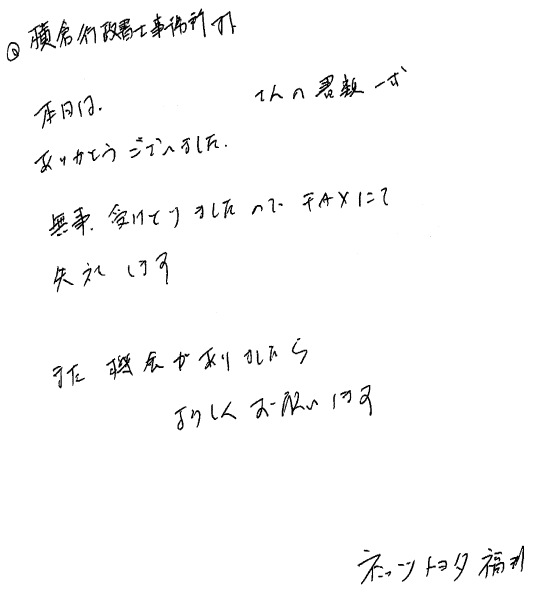 横倉行政書士事務所 様
本日は、 さんの書類一式
ありがとうございました。
無事、受けとりましたので FAXにて
失礼します
また 機会がありましたら
よろしくお願いします
ネッツトヨタ 福井